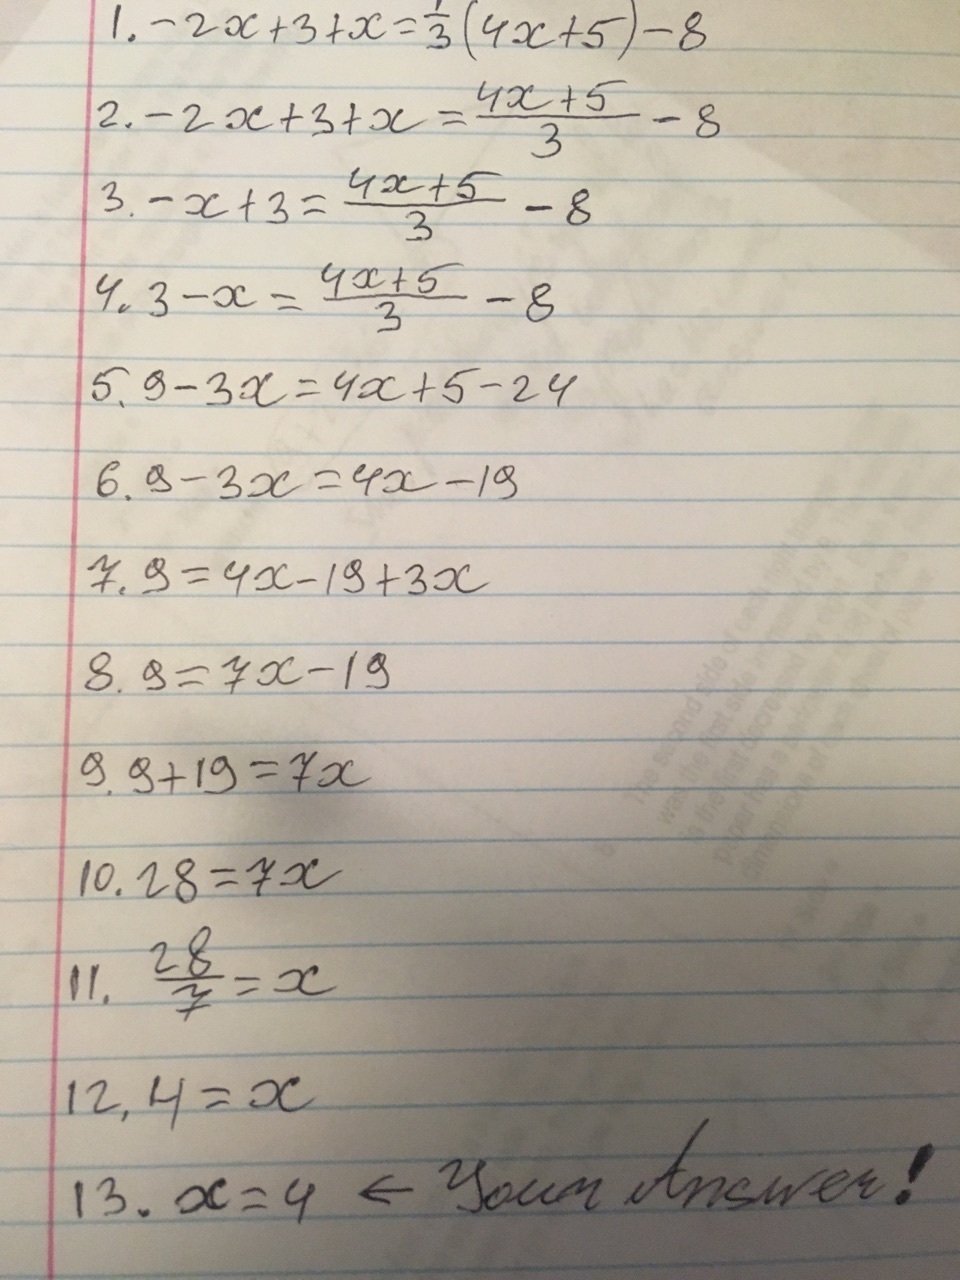 1. -2x+3+x=1/3(4x+5)-8
2. -2x+3+x=(4x+5)/3-8
3. -x+3=(4x+5)/3-8
4. 3-x=(4x+5)/3-8
5. 9-3x=4x+5-24
6. 9-3x=4x-19
7. 9=4x-19+3x
8. 9=7x-19
9. 9+19=7x
10. 28=7x
11. 28/7=x
12, 4=x
13. x=4 ← Your Answer!
The second side of
was the first side